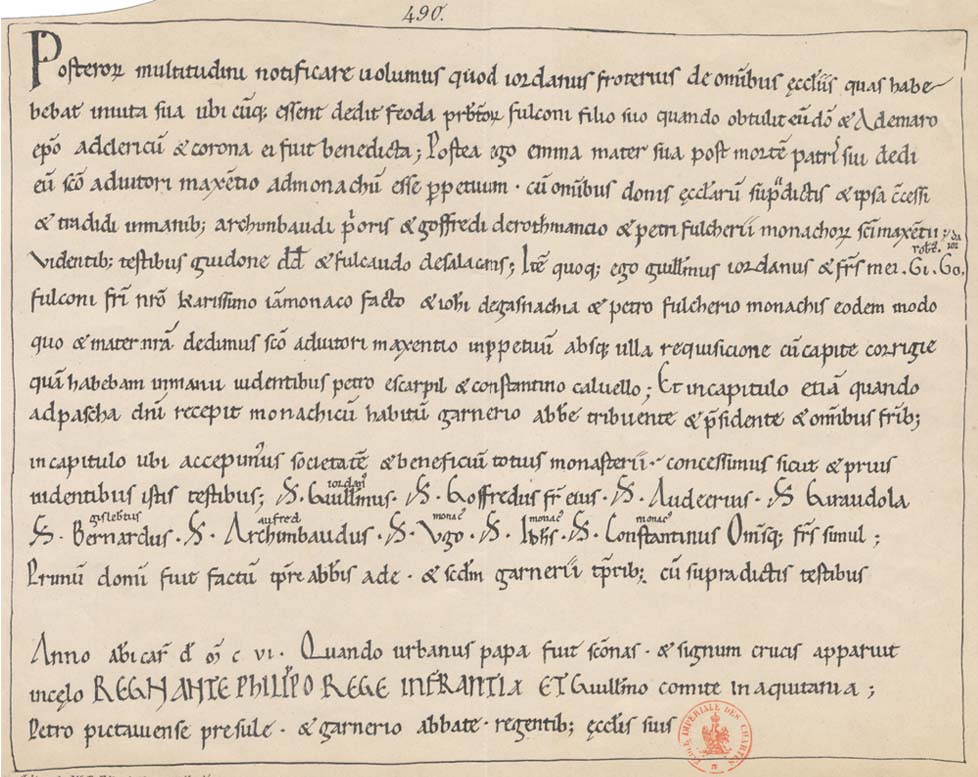 490.
Posteror multitudini notificare uolumus quod iordanus froterius de omibus ęccliis quas habe
bebat inuita sua ubi cūq; essent dedit feoda prbtor fulconi filio suo quando obtulit eū dō & Ademaro
epō adclericū & corona ei fuit benedicta; Postea ego emma mater sua post mortē patris sui dedi
eū scō adiutori maxētio admonachū esse ppetuum · cū omibus donis ęcclarū supdictis & ipsa ccessi
& tradidi inmanib; archimbaudi pioris & goffredi derothmancio & petri fulcherii monachor sci maxētii;
Videntib; testibus guidone & fulcaudo desalaciis; Itē quoq; ego guillmus iordanus & frs mei · Gi · Go,
fulconi fri nro karissimo iā monaco facto & iohi degasnachia & petro fulcherio monachis eodem modo
quo & mater nrā dedimus scō adiutori maxentio inppetuū absq; ulla requisicione cū capite corrigie
quā habebam inmanu uidentibus petro escarpil & constantino caluello; Et incapitulo etiā quando
adpascha dni recepit monachicū habitū garnerio abbe tribuente & psidente & omibus frib;
incapitulo ubi accepimus societatē & beneficiū totius monasterii · concessimus sicut & prius
uidentibus istis testibus; S. Guillmus iordan · S. Goffredus fr eius · S. Audeerius · S. Giraudola
S. Bernardus gislebtus · S. Archimbaudus aufred · S. Vgo monac · S. Iohis monac · S. Constantinus monac Omisq; frs simul;
Primū donū fuit factū tpre abbis ade · & scdm garnerii tprib; cū supradictis testibus
Anno ab icar d m c vi · Quando urbanus papa fuit scōnas · & signum crucis apparuit
incęlo REGNANTE PHILIPO REGE INFRANTIA ET Guillmo comite in aquitania;
Petro pictauense presule · & garnerio abbate · regentib; ęcclis suis
ÉCOLE IMPÉRIALE DES CHARTES